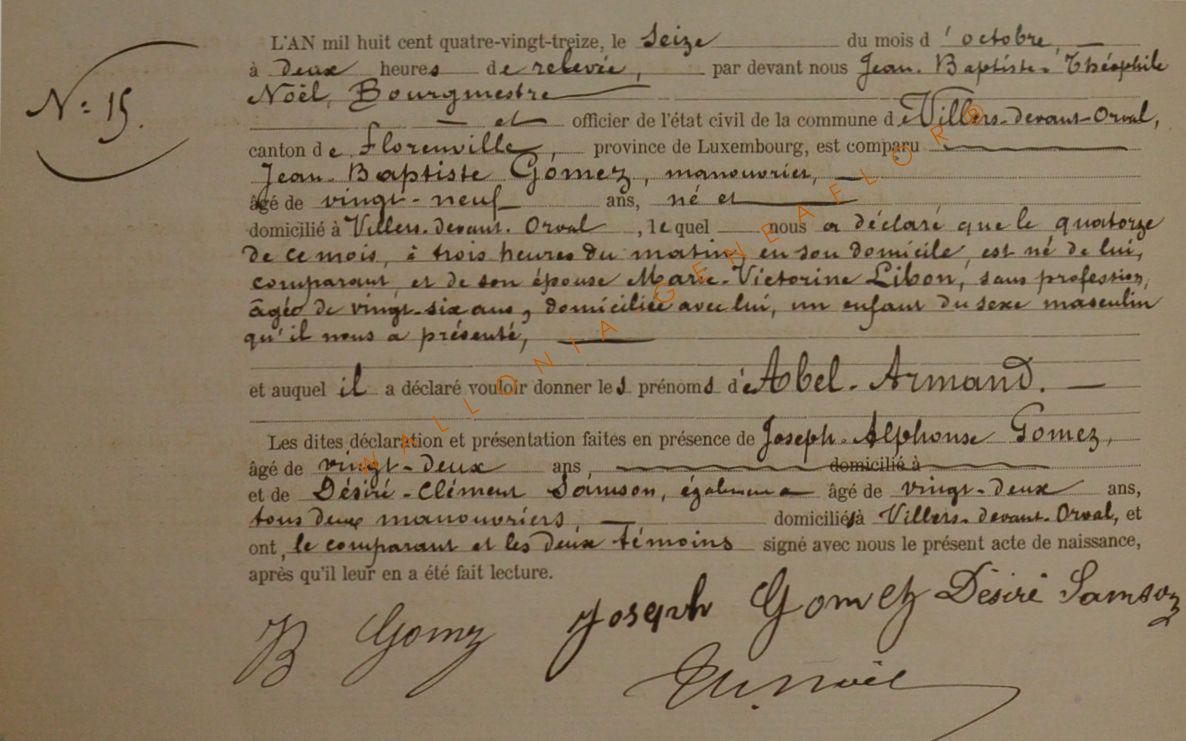 L'AN mil huit cent quatre-vingt-treize, le Seize du mois d'octobre,
à deux heures de relevée, par devant nous Jean-Baptiste-Théophile
Noël, Bourgmestre
N: 15.
et officier de l'état civil de la commune de Villers-devant-Orval,
canton de Florenville, province de Luxembourg, est comparu
Jean-Baptiste Gomez, manouvrier,
âgé de vingt-neuf ans, né et
domicilié à Villers-devant-Orval, lequel nous a déclaré que le quatorze
de ce mois, à trois heures du matin, en son domicile, est né de lui,
comparant, et de son épouse Marie-Victorine Libon, sans profession,
âgée de vingt-six ans, domiciliée avec lui, un enfant du sexe masculin
qu'il nous a présenté,
et auquel il a déclaré vouloir donner les prénoms d'Abel-Armand.
Les dites déclaration et présentation faites en présence de Joseph-Alphonse Gomez,
âgé de vingt-deux ans, domicilié à
et de Désiré-Clément Samson, également âgé de vingt-deux ans,
tous deux manouvriers, domiciliés à Villers-devant-Orval, et
ont, le comparant et les deux témoins signé avec nous le présent acte de naissance,
après qu'il leur en a été fait lecture.
JB Gomez Joseph Gomez Désiré Samson
Th. Noël
WALLONIA GENEAFLORE